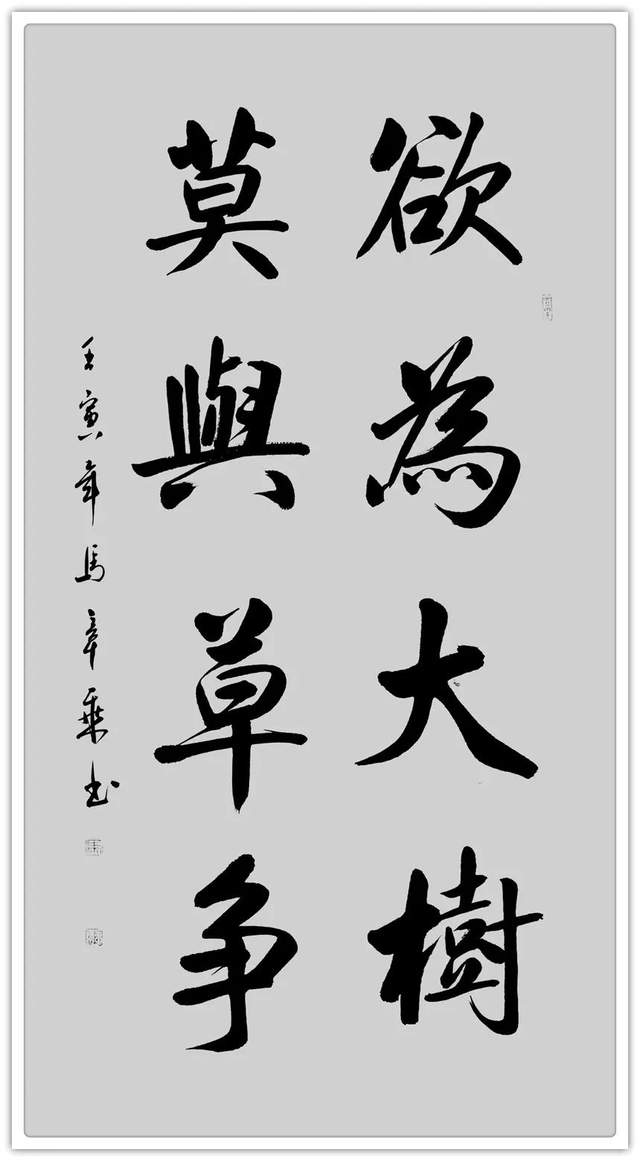 欲為大樹
莫與草争
壬寅年馬章乘书